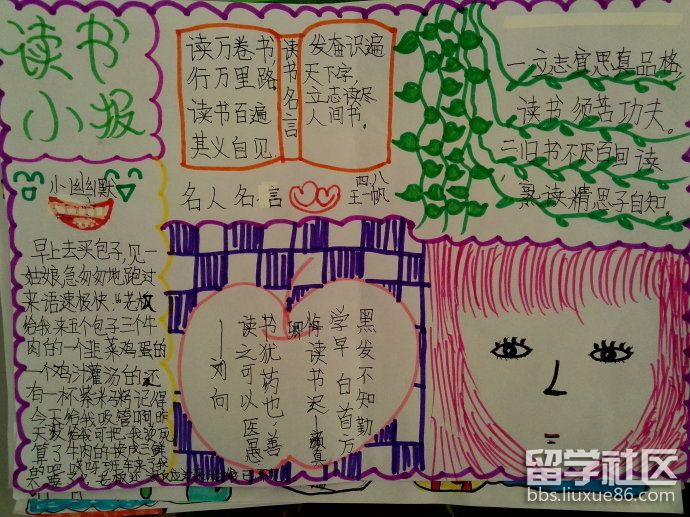 读书
小报
读万卷书,
行万里路。
读书百遍
其义自见
读书名言
发奋识遍
天下字,
立志读尽
人间书。
名人名言
四、八
王一帆
一立志宜思真品格,
读书须苦功夫。
二旧书不厌百回读,
熟读精思子自知。
小幽默
早上去买包子,见一
姑娘急匆匆地跑过
来语速极快:“老板
给我来五个包子三个牛
肉的一个韭菜鸡蛋的
一个鸡汁灌汤的还
有一杯紫米粥记得
今天给我吸管啊昨
天没给我
算了牛肉的换成三鲜
黑发不知勤
学早 白首方
悔读书迟—颜真卿
书犹药也,善
读之可以医愚
——刘向
留学社区
bbs.liuxue86.com